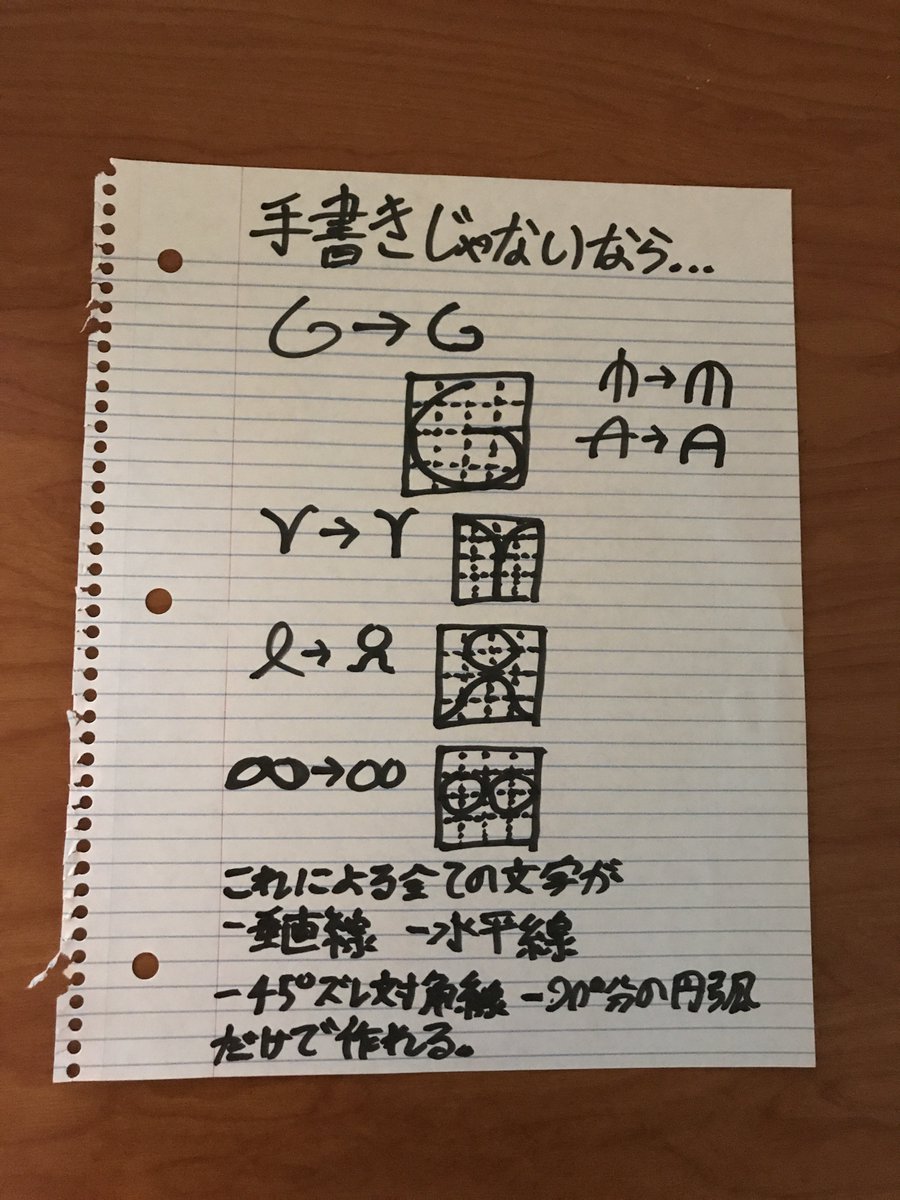 手書きじゃないなら...
G→G
A→A
γ→Y
l→
∞→∞
これによる全ての文字が
-垂直線 -水平線
-45°ズレ対角線 -90°分の円弧
だけで作れる。